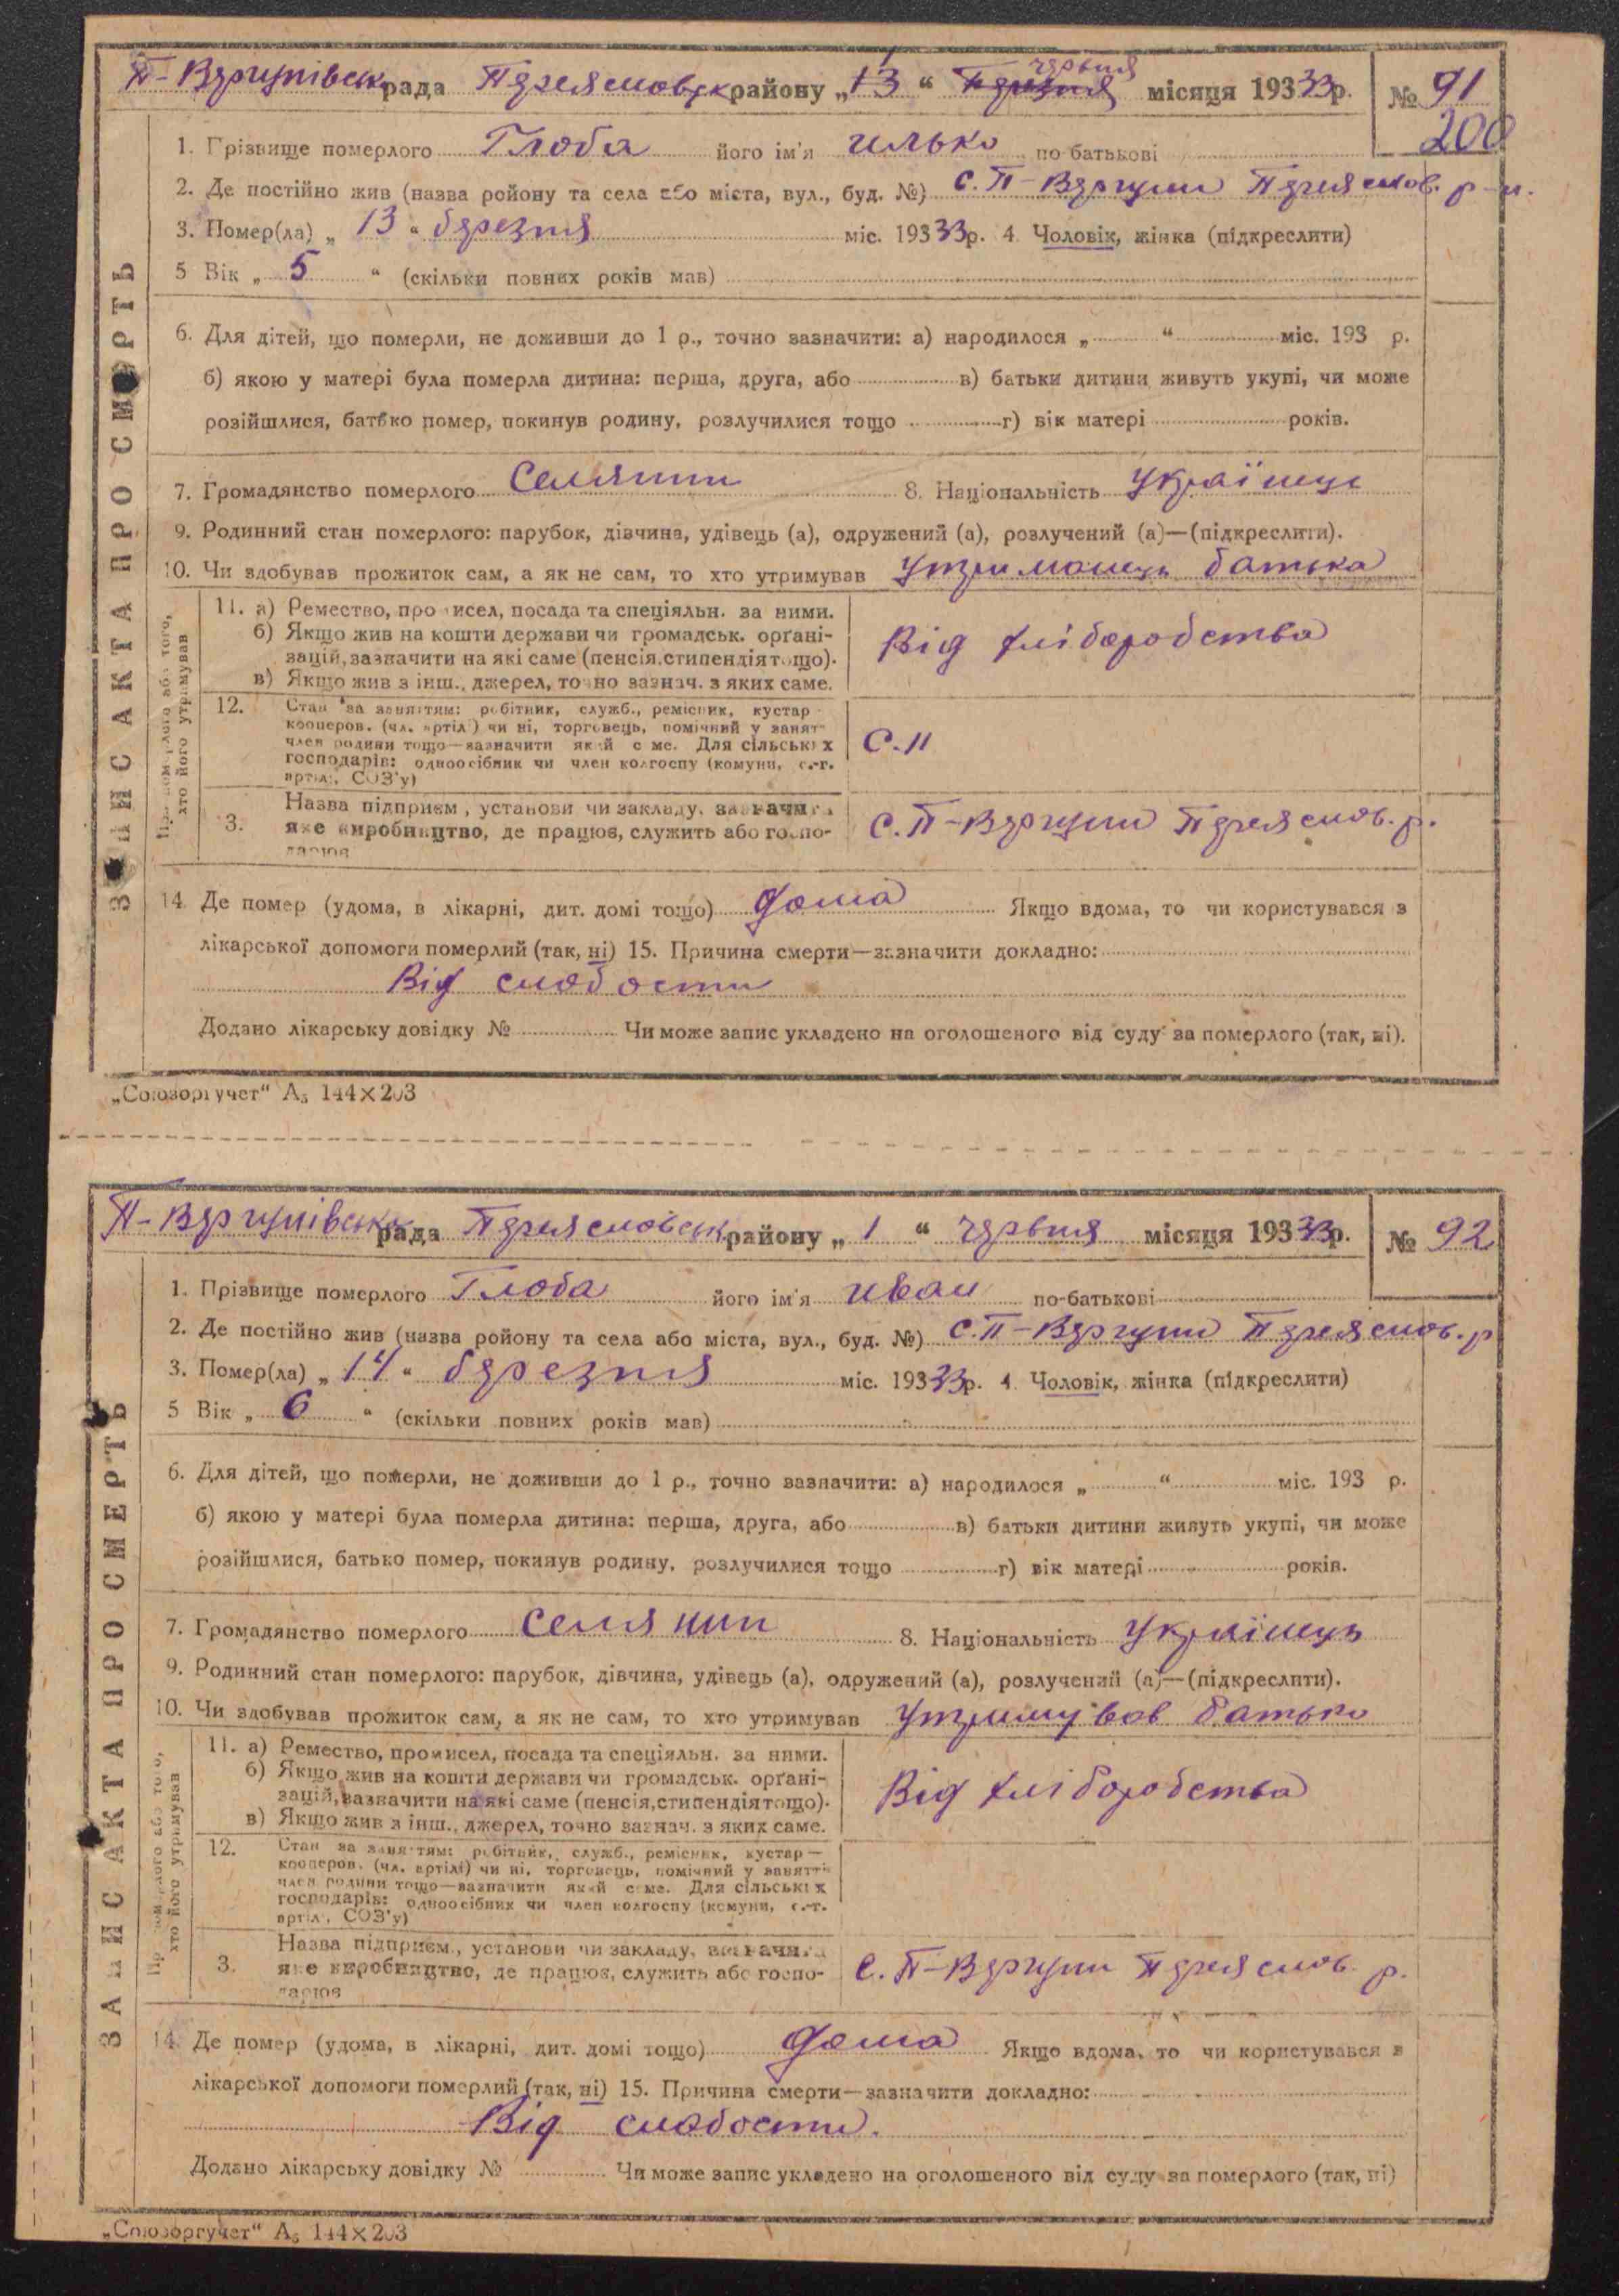 П-Вергунівськ рада Переяславськ району „13“ березня червня місяця 193 33 р. № 91
200
1. Прізвище померлого Глоба його ім'я Илько по-батькові
2. Де постійно жив (назва ройону та села або міста, вул., буд. №) с. П-Вергуни Переяслов. р-н.
3. Помер(ла) „ 13 “ березня міс. 193 33 р. 4. Чоловік, жінка (підкреслити)
5 Вік „ 5 “ (скільки повних років мав)
6. Для дітей, що померли, не доживши до 1 р., точно зазначити: а) народилося „ “ міс. 193 р.
б) якою у матері була померла дитина: перша, друга, або в) батьки дитини живуть укупі, чи може
розійшлися, батько помер, покинув родину, розлучилися тощо г) вік матері років.
7. Громадянство померлого Селянин 8. Національність Українець
9. Родинний стан померлого: парубок, дівчина, удівець (а), одружений (а), розлучений (а)—(підкреслити).
10. Чи здобував прожиток сам, а як не сам, то хто утримував Утриманець батька
ЗАПИС АКТА ПРО СМЕРТЬ
Про померлого або того, хто його утримував
11. а) Ремество, промисел, посада та спеціяльн. за ними.
б) Якщо жив на кошти держави чи громадськ. органі-
зацій, зазначити на які саме (пенсія, стипендія тощо).
в) Якщо жив з інш., джерел, точно зазнач. з яких саме.
Від хліборобства
12. Стан за заняттям: робітник, служб., ремісник, кустар—
кооперов. (чл. артілі) чи ні, торговець, помічний у занятті
член родини тощо—зазначити який саме. Для сільських
господарів: одноосібник чи член колгоспу (комуни, с.-г.
артілі, СОЗ'у)
С.П
3. Назва підприєм., установи чи закладу, зазначити
яке виробництво, де працюв, служить або госпо-
дарюв
с. П-Вергуни Переяслов. р.
14. Де помер (удома, в лікарні, дит. домі тощо) дома Якщо вдома, то чи користувався з
лікарської допомоги померлий (так, ні) 15. Причина смерти—зазначити докладно:
Від слабости
Додано лікарську довідку № Чи може запис укладено на оголошеного від суду за померлого (так, ні).
„Союзоргучет“ А₅ 144×203
П-Вергунівська рада Переяславськ району „ 1 “ червня місяця 193 33 р. № 92
1. Прізвище померлого Глоба його ім'я Иван по-батькові
2. Де постійно жив (назва ройону та села або міста, вул., буд. №) с. П-Вергуни Переяслов. р
3. Помер(ла) „ 14 “ березня міс. 193 33 р. 4 Чоловік, жінка (підкреслити)
5 Вік „ 6 “ (скільки повних років мав)
6. Для дітей, що померли, не доживши до 1 р., точно зазначити: а) народилося „ “ міс. 193 р.
б) якою у матері була померла дитина: перша, друга, або в) батьки дитини живуть укупі, чи може
розійшлися, батько помер, покинув родину, розлучилися тощо г) вік матері років.
7. Громадянство померлого селянин 8. Національність Українець
9. Родинний стан померлого: парубок, дівчина, удівець (а), одружений (а), розлучений (а)—(підкреслити).
10. Чи здобував прожиток сам, а як не сам, то хто утримував Утримував батько
ЗАПИС АКТА ПРО СМЕРТЬ
Про померлого або того, хто його утримував
11. а) Ремество, промисел, посада та спеціяльн. за ними.
б) Якщо жив на кошти держави чи громадськ. органі-
зацій, зазначити на які саме (пенсія, стипендія тощо).
в) Якщо жив з інш., джерел, точно зазнач. з яких саме.
Від хліборобства
12. Стан за заняттям: робітник, служб., ремісник, кустар—
кооперов. (чл. артілі) чи ні, торговець, помічний у занятті
член родини тощо—зазначити який саме. Для сільських
господарів: одноосібник чи член колгоспу (комуни, с.-г.
артілі, СОЗ'у)
3. Назва підприєм., установи чи закладу, зазначити
яке виробництво, де працюв, служить або госпо-
дарюв
с. П-Вергуни Переяслов. р.
14. Де помер (удома, в лікарні, дит. домі тощо) дома Якщо вдома, то чи користувався з
лікарської допомоги померлий (так, ні) 15. Причина смерти—зазначити докладно:
Від слабости.
Додано лікарську довідку № Чи може запис укладено на оголошеного від суду за померлого (так, ні)
„Союзоргучет“ А₅ 144×203